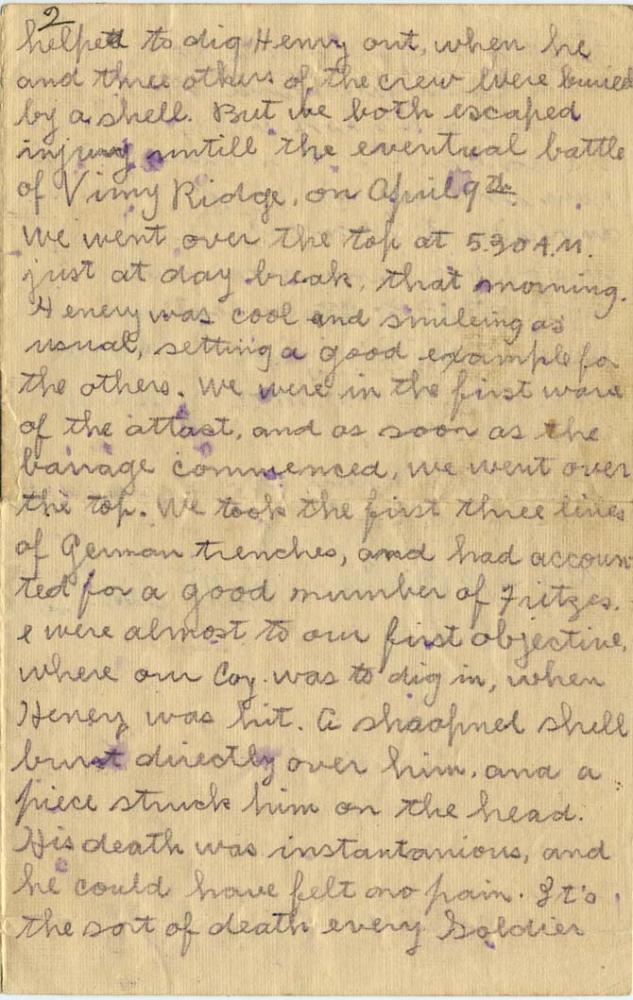 2
helped to dig Henry out, when he
and three others of the crew were buried
by a shell. But we both escaped
injury untill the eventual battle
of Vimy Ridge, on April 9th.
We went over the top at 5.30 A.M.
just at day break, that morning.
Henery was cool and smileing as
usual, setting a good example for
the others. We were in the first wave
of the attact, and as soon as the
barrage commenced, we went over
the top. We took the first three lines
of German trenches, and had accoun
ted for a good number of Fritzes.
e were almost to our first objective,
where our Coy. was to dig in, when
Henery was hit. A shrapnel shell
burst directly over him, and a
piece struck him on the head.
His death was instantanious, and
he could have felt no pain. It's
the sort of death every Soldier